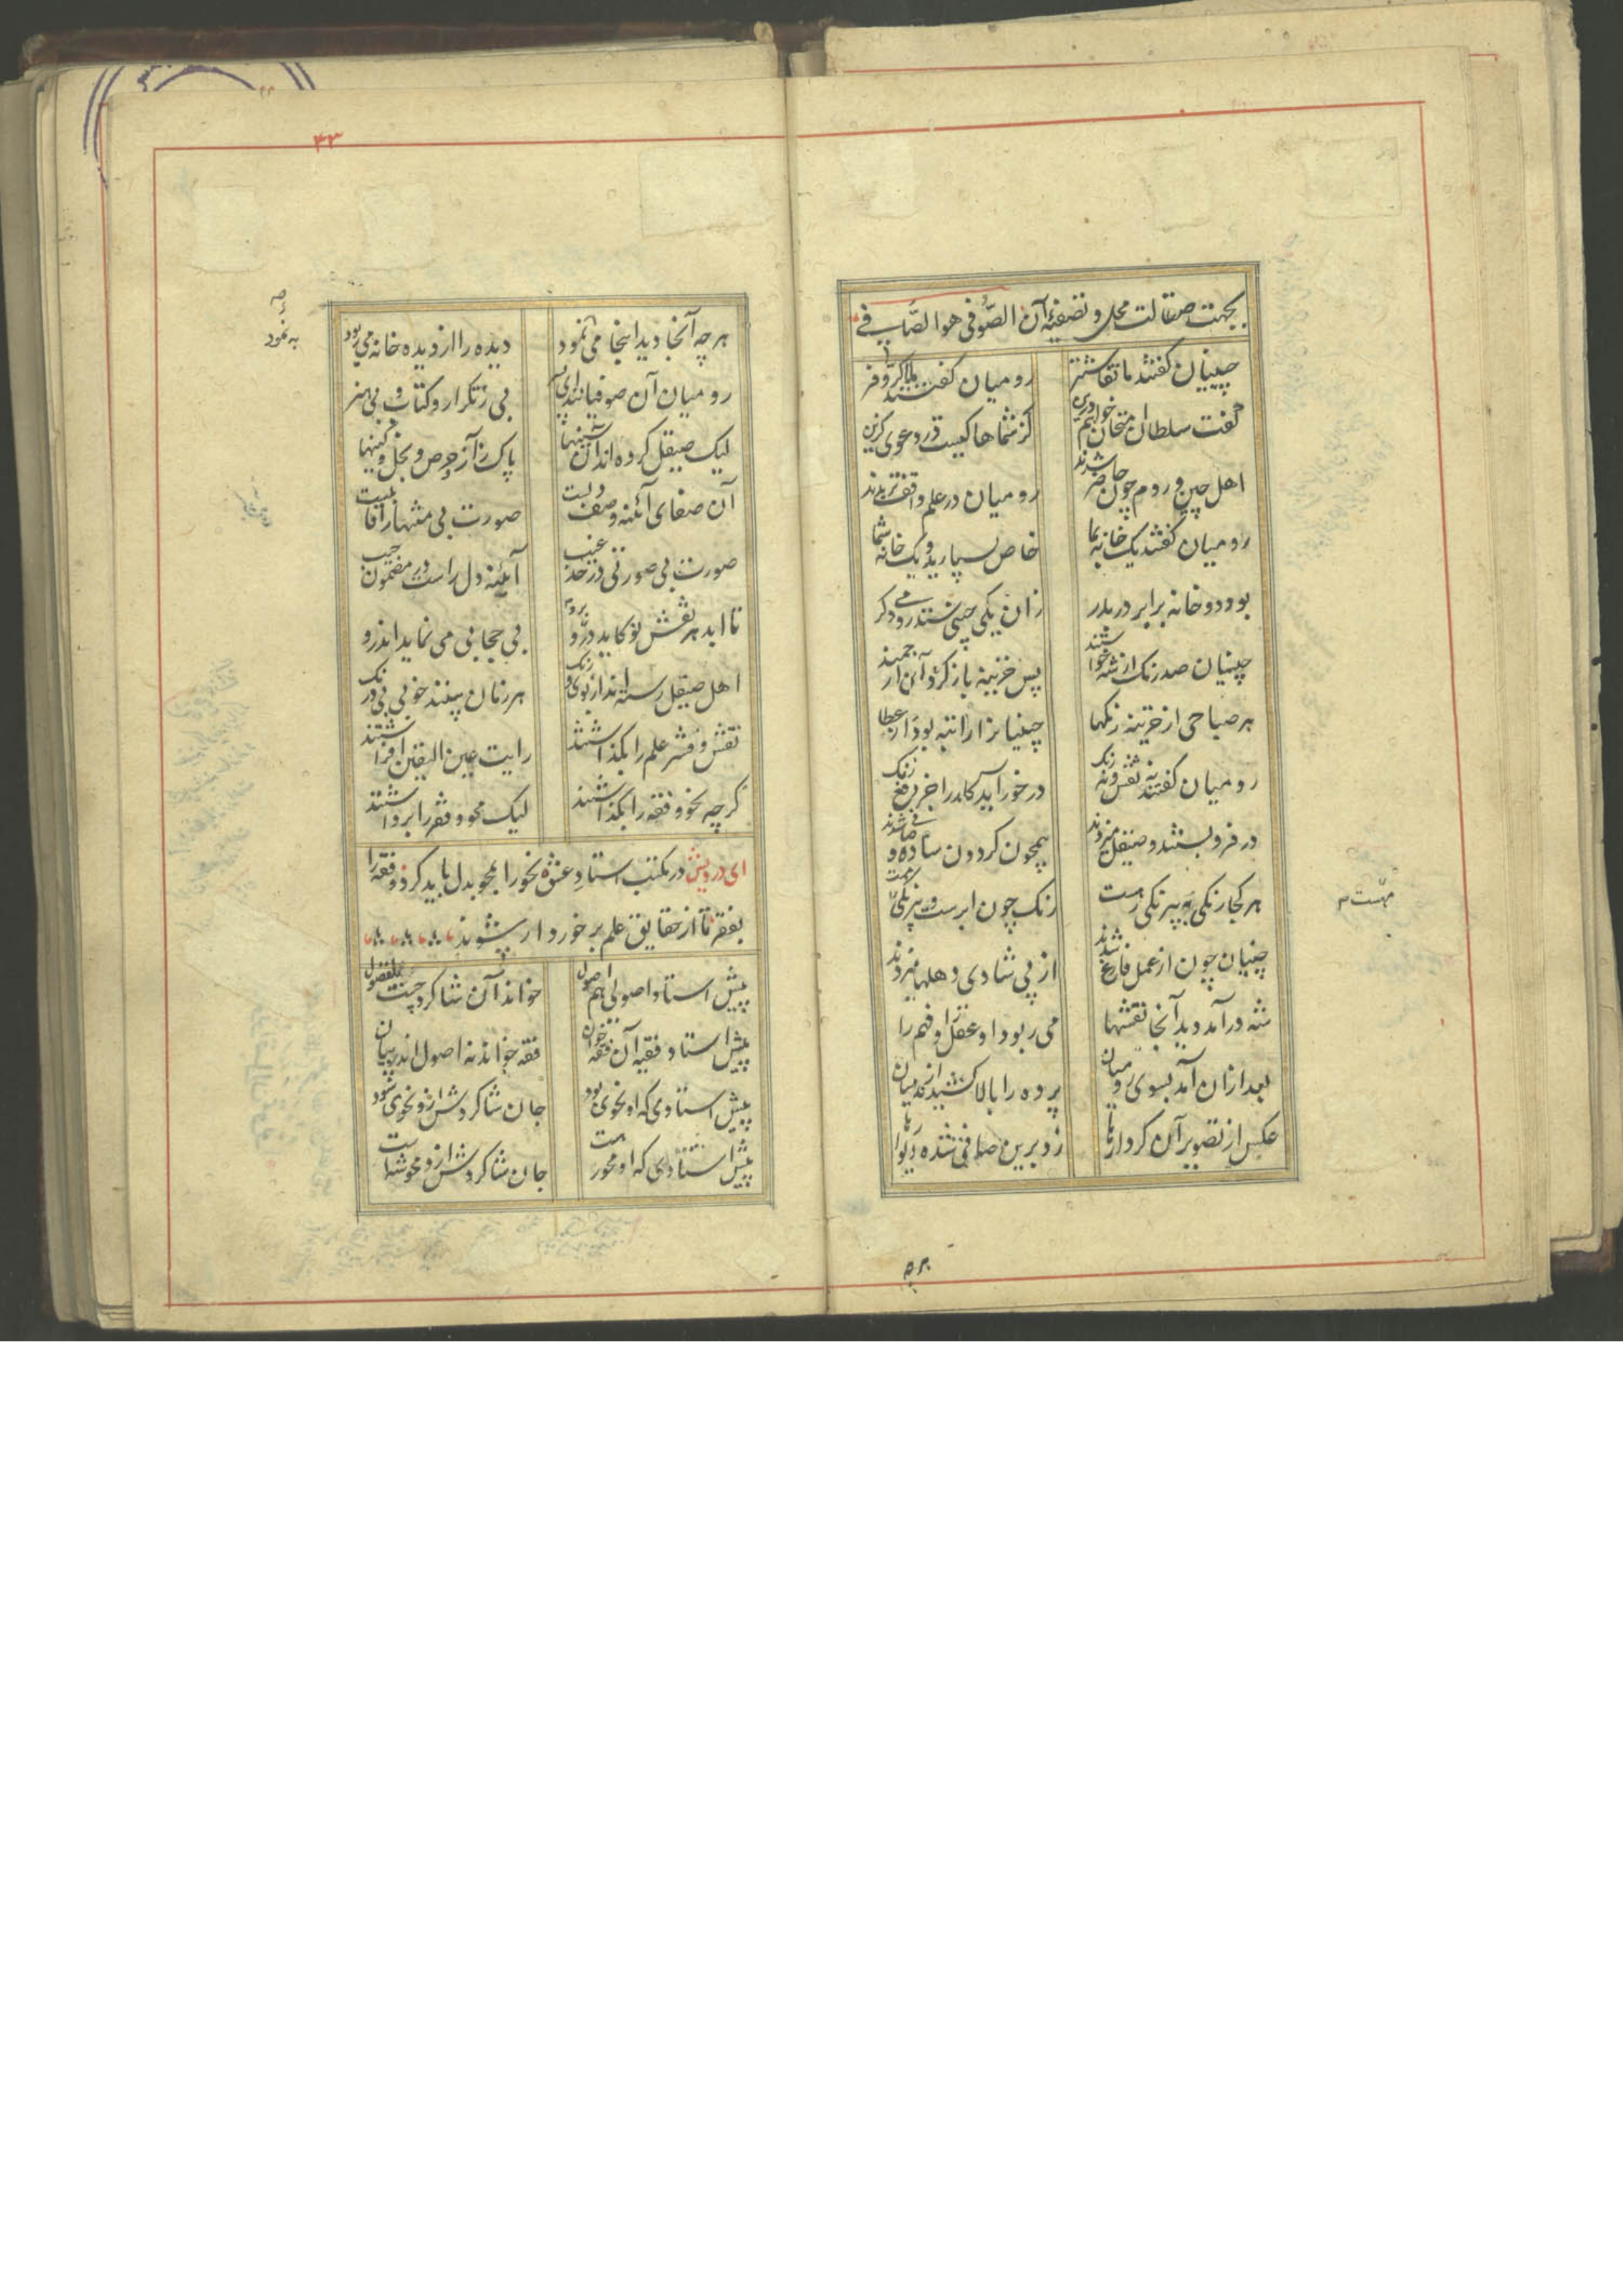 بجهت صقالت محل و تصفیهٔ آن الصّوفی هو الصّافی
چینیان گفتند ما نقاشتر رومیان گفتند ما را کرّ و فر
گفت سلطان امتحان خواهم درین کز شماها کیست در دعوی گزین
اهل چین و روم چون حاضر شدند رومیان در علم واقف‌تر بدند
رومیان گفتند یک خانه بما خاص بسپارید و یک خانه شما
بود دو خانه برابر در بدر زان یکی چینی ستد رومی دگر
چینیان صد رنک از شه خواستند پس خزینه باز کرد آن ارجمند
هر صباحی از خزینه رنکها چینیانرا راتبه بود از عطا
رومیان گفتند نه نقش و نه رنک در خور آید کار را جز دفع زنک
در فرو بستند و صیقل میزدند همچون گردون ساده و صافی شدند
هر کجا رنکی به بیرنکی رهست رنک چون ابرست و بیرنکی مهست
چینیان چون از عمل فارغ شدند از پی شادی دهلها میزدند
شه درآمد دید آنجا نقشها می ربود او عقل را و فهم را
بعد ازان آمد بسوی رومیان پرده را بالا کشیدند از میان
عکس از تصویر آن کردارها زد برین صافی شده دیوارها
مهست
۴۳
هر چه آنجا دید اینجا می نمود دیده را از دیده خانه می ربود
به نمود
رومیان آن صوفیانند ای پسر بی ز تکرار و کتاب و بی هنر
لیک صیقل کرده اند آن سینها پاک ز آز و حرص و بخل و کینها
آن صفای آئنه وصف دلست صورت بی منتها را قابلست
صورت بی صورتی در حد غیب آئینه دل راست در مضمون جیب
تا ابد هر نقش نو کاید درو برو بی حجابی می نماید اندرو
اهل صیقل رسته اند از بوی و رنک هر زمان بینند خوبی بی درنک
نقش و قشر علم را بگذاشتند رایت عین الیقین افراشتند
گر چه نحو و فقه را بگذاشتند لیک محو و فقر را برداشتند
ای درویش در مکتب استاد عشق نحو را بمحو بدل باید کرد و فقه را
بفقر تا از حقایق علم برخوردار شوید
پیش استاد اصولی هم اصول خواند آن شاگرد چست
پیش استاد فقیه آن فقه خوان فقه خواند نه اصول اندر بیان
پیش استادی که او نحوی بود جان شاگردش ازو نحوی شود
پیش استادی که او محو رهست جان شاگردش ازو محو شه است